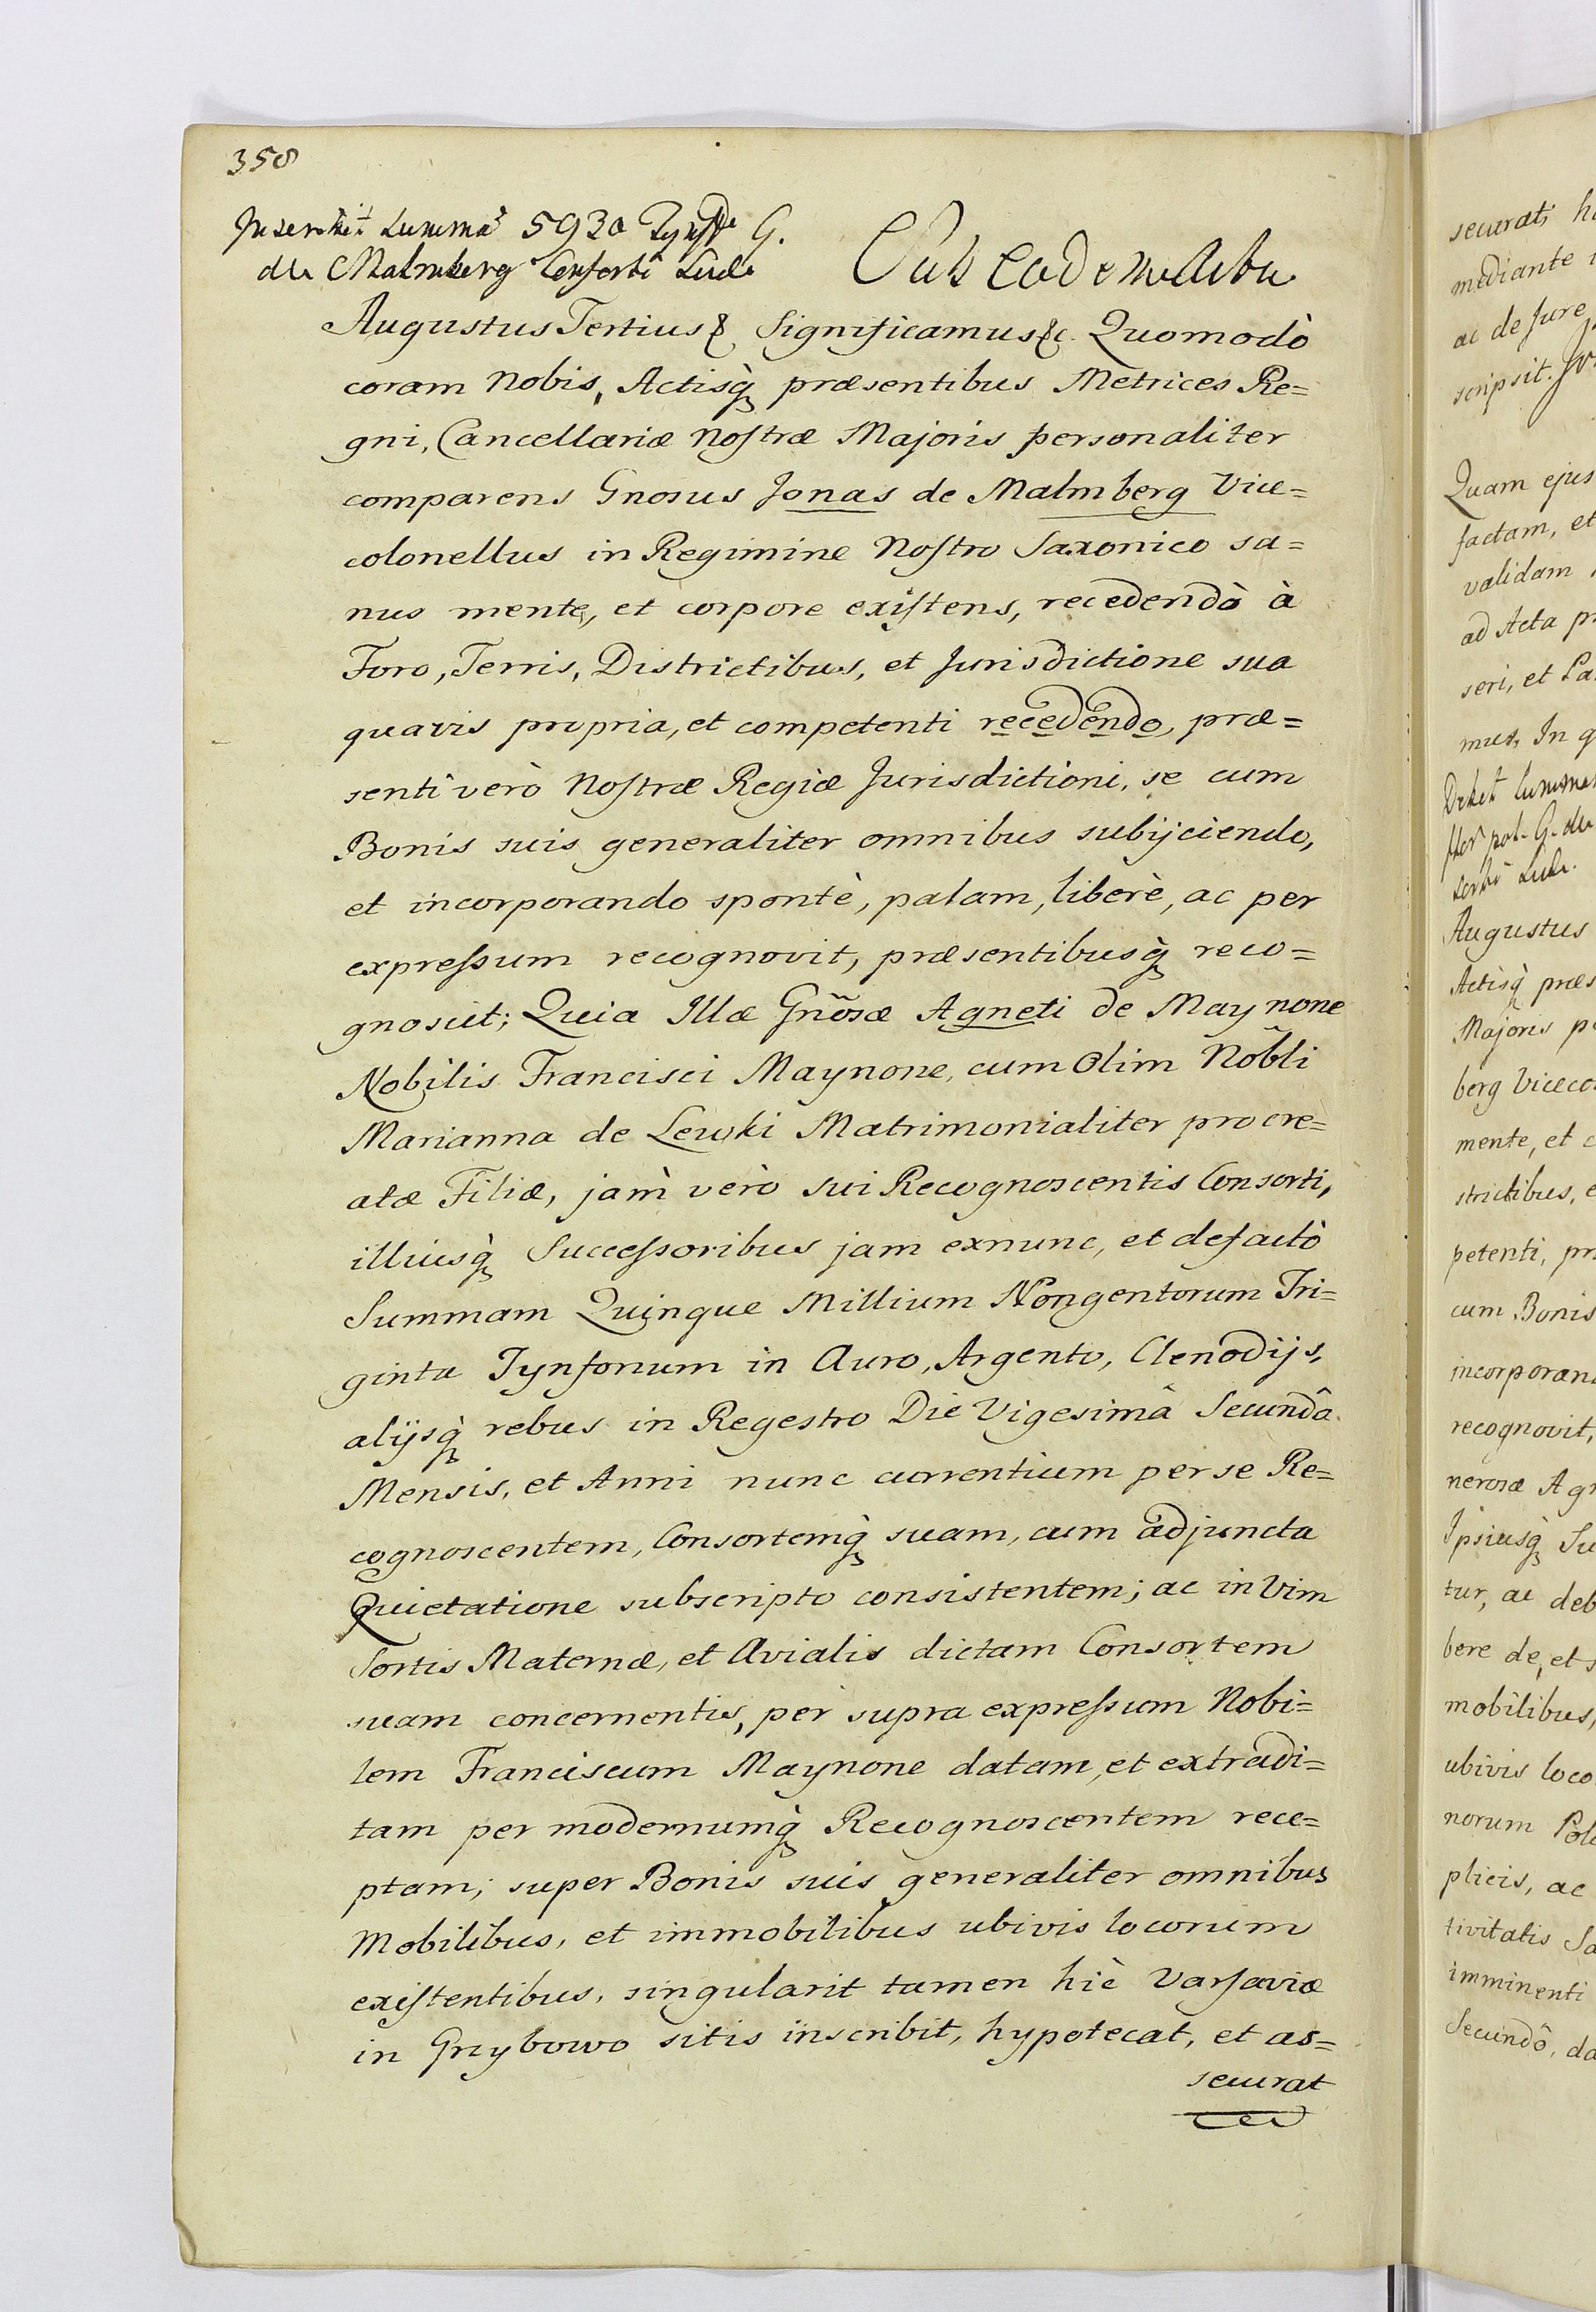 358
Inscribit Summã 5930 Tynff G.
de Malmberg Consorti Suæ
Sub eodem Actu
Augustus Tertius &. Significamus &c. Quomodò
coram Nobis, Actisq̀ præsentibus Metrices Re=
gni, Cancellariæ Nostræ Majoris personaliter
comparens Gnosus Jonas de Malmberg Vice=
colonellus in Regimine Nostro Saxonico sa=
nus mente, et corpore existens, recedendò à
Foro, Terris, Districtibus, et Jurisdictione sua
quavis propria, et competenti recedendo, præ=
senti verò Nostræ Regiæ Jurisdictioni, se cum
Bonis suis generaliter omnibus subijciendo,
et incorporando spontè, palam, liberè, ac per
expressum recognovit, præsentibusq̀ reco=
gnoscit; Quia Illa Gñosæ Agneti de Maynone
Nobilis Francisci Maynone, cum Olim Nõbli
Marianna de Lewski Matrimonialiter procre=
atæ Filiæ, jam̀ verò sui Recognoscentis Consorti,
illiusq̀ Successoribus jam exnunc, et defactò
Summam Quinque Millium Nongentorum Tri=
ginta Tynfonum in Auro, Argento, Clenodijs,
alijsq̀ rebus in Regestro Die Vigesimâ Secundâ
Mensis, et Anni nunc currentium per se Re=
cognoscentem, Consortemq̀ suam, cum adjuncta
Quietatione subscripto consistentem; ac in Vim
Sortis Maternæ, et Avialis dictam Consortem
suam concernentis, per supra expressum Nobi=
lem Franciscum Maynone datam, et extradi=
tam per modernumq̀ Recognoscentem rece=
ptam; super Bonis suis generaliter omnibus
Mobilibus, et immobilibus ubivis locorum
existentibus, singularit tamen hìc Varsaviæ
in Grzybowo sitis inscribit, hypotecat, et as=
securat
securat, h
mediante
ac de Jure
scripsit.
Quam ejus
factam, et
validam
ad Acta pr
seri, et
mus, In q
Debet Summa
flor pol. G. de
sorti Suæ.
Augustus
Actisq̀ præs
Majoris p
berg Viceco
mente, et c
strictibus, e
petenti, pr
cum Bonis
incorporan
recognovit,
nerosæ Ag
Ipsiusq̀ Su
tur, ac deb
bere de, et s
mobilibus,
ubivis loco
norum Pol
plicis, ac
tivitatis Sa
imminenti
Secundô, da